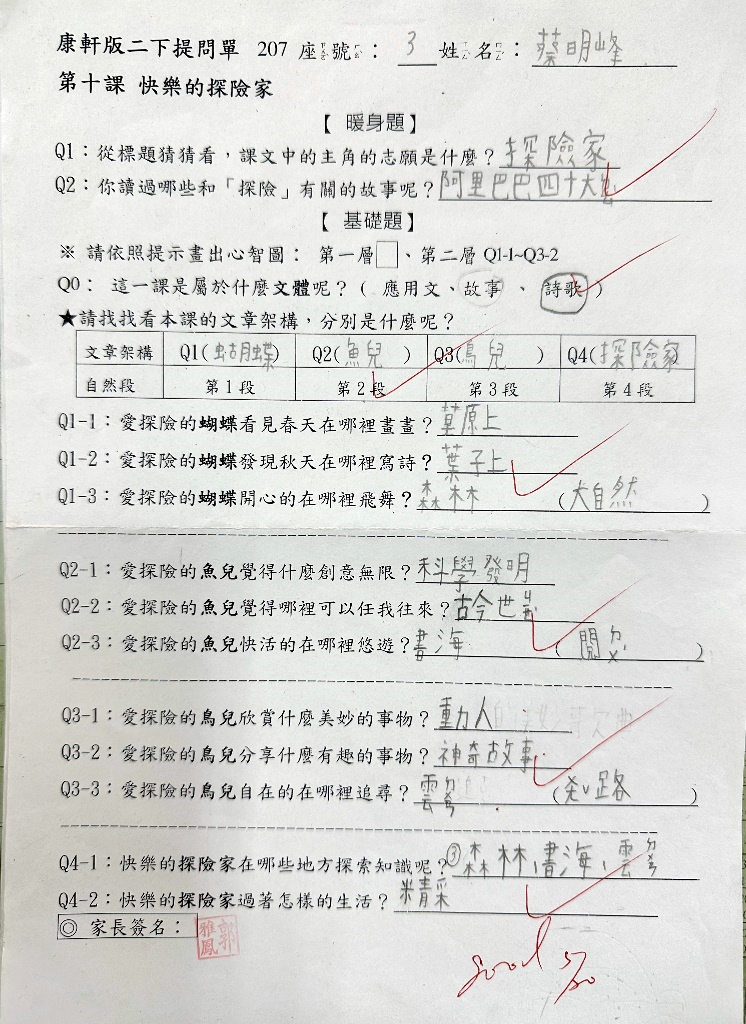 康軒版二下提問單 207 座號: 3 姓名: 蔡明峰
第十課 快樂的探險家
【 暖身題】
Q1:從標題猜猜看,課文中的主角的志願是什麼?探險家
Q2:你讀過哪些和「探險」有關的故事呢?阿里巴巴四十大
【 基礎題】
※ 請依照提示畫出心智圖: 第一層□、第二層 Q1-1~Q3-2
Q0: 這一課是屬於什麼文體呢?( 應用文、故事 、 詩歌 )
★請找找看本課的文章架構,分別是什麼呢?
文章架構 Q1(蛄月蝶) Q2(魚兒 ) Q3(鳥兒 ) Q4(探險家)
自然段 第1段 第2段 第3段 第4段
Q1-1:愛探險的蝴蝶看見春天在哪裡畫畫?草原上
Q1-2:愛探險的蝴蝶發現秋天在哪裡寫詩?葉子上
Q1-3:愛探險的蝴蝶開心的在哪裡飛舞?森林 (大自然 )
Q2-1:愛探險的魚兒覺得什麼創意無限?科學發明
Q2-2:愛探險的魚兒覺得哪裡可以任我往來?古今世
Q2-3:愛探險的魚兒快活的在哪裡悠遊?書海 ( 閱ㄉㄨˊ )
Q3-1:愛探險的鳥兒欣賞什麼美妙的事物?動人
Q3-2:愛探險的鳥兒分享什麼有趣的事物?神奇故事
Q3-3:愛探險的鳥兒自在的在哪裡追尋?雲ㄉㄨㄢ ( 路 )
Q4-1:快樂的探險家在哪些地方探索知識呢?③森林、書海、雲ㄉㄨㄢ
Q4-2:快樂的探險家過著怎樣的生活?精采
◎ 家長簽名: 郭雅鳳
good 5/20